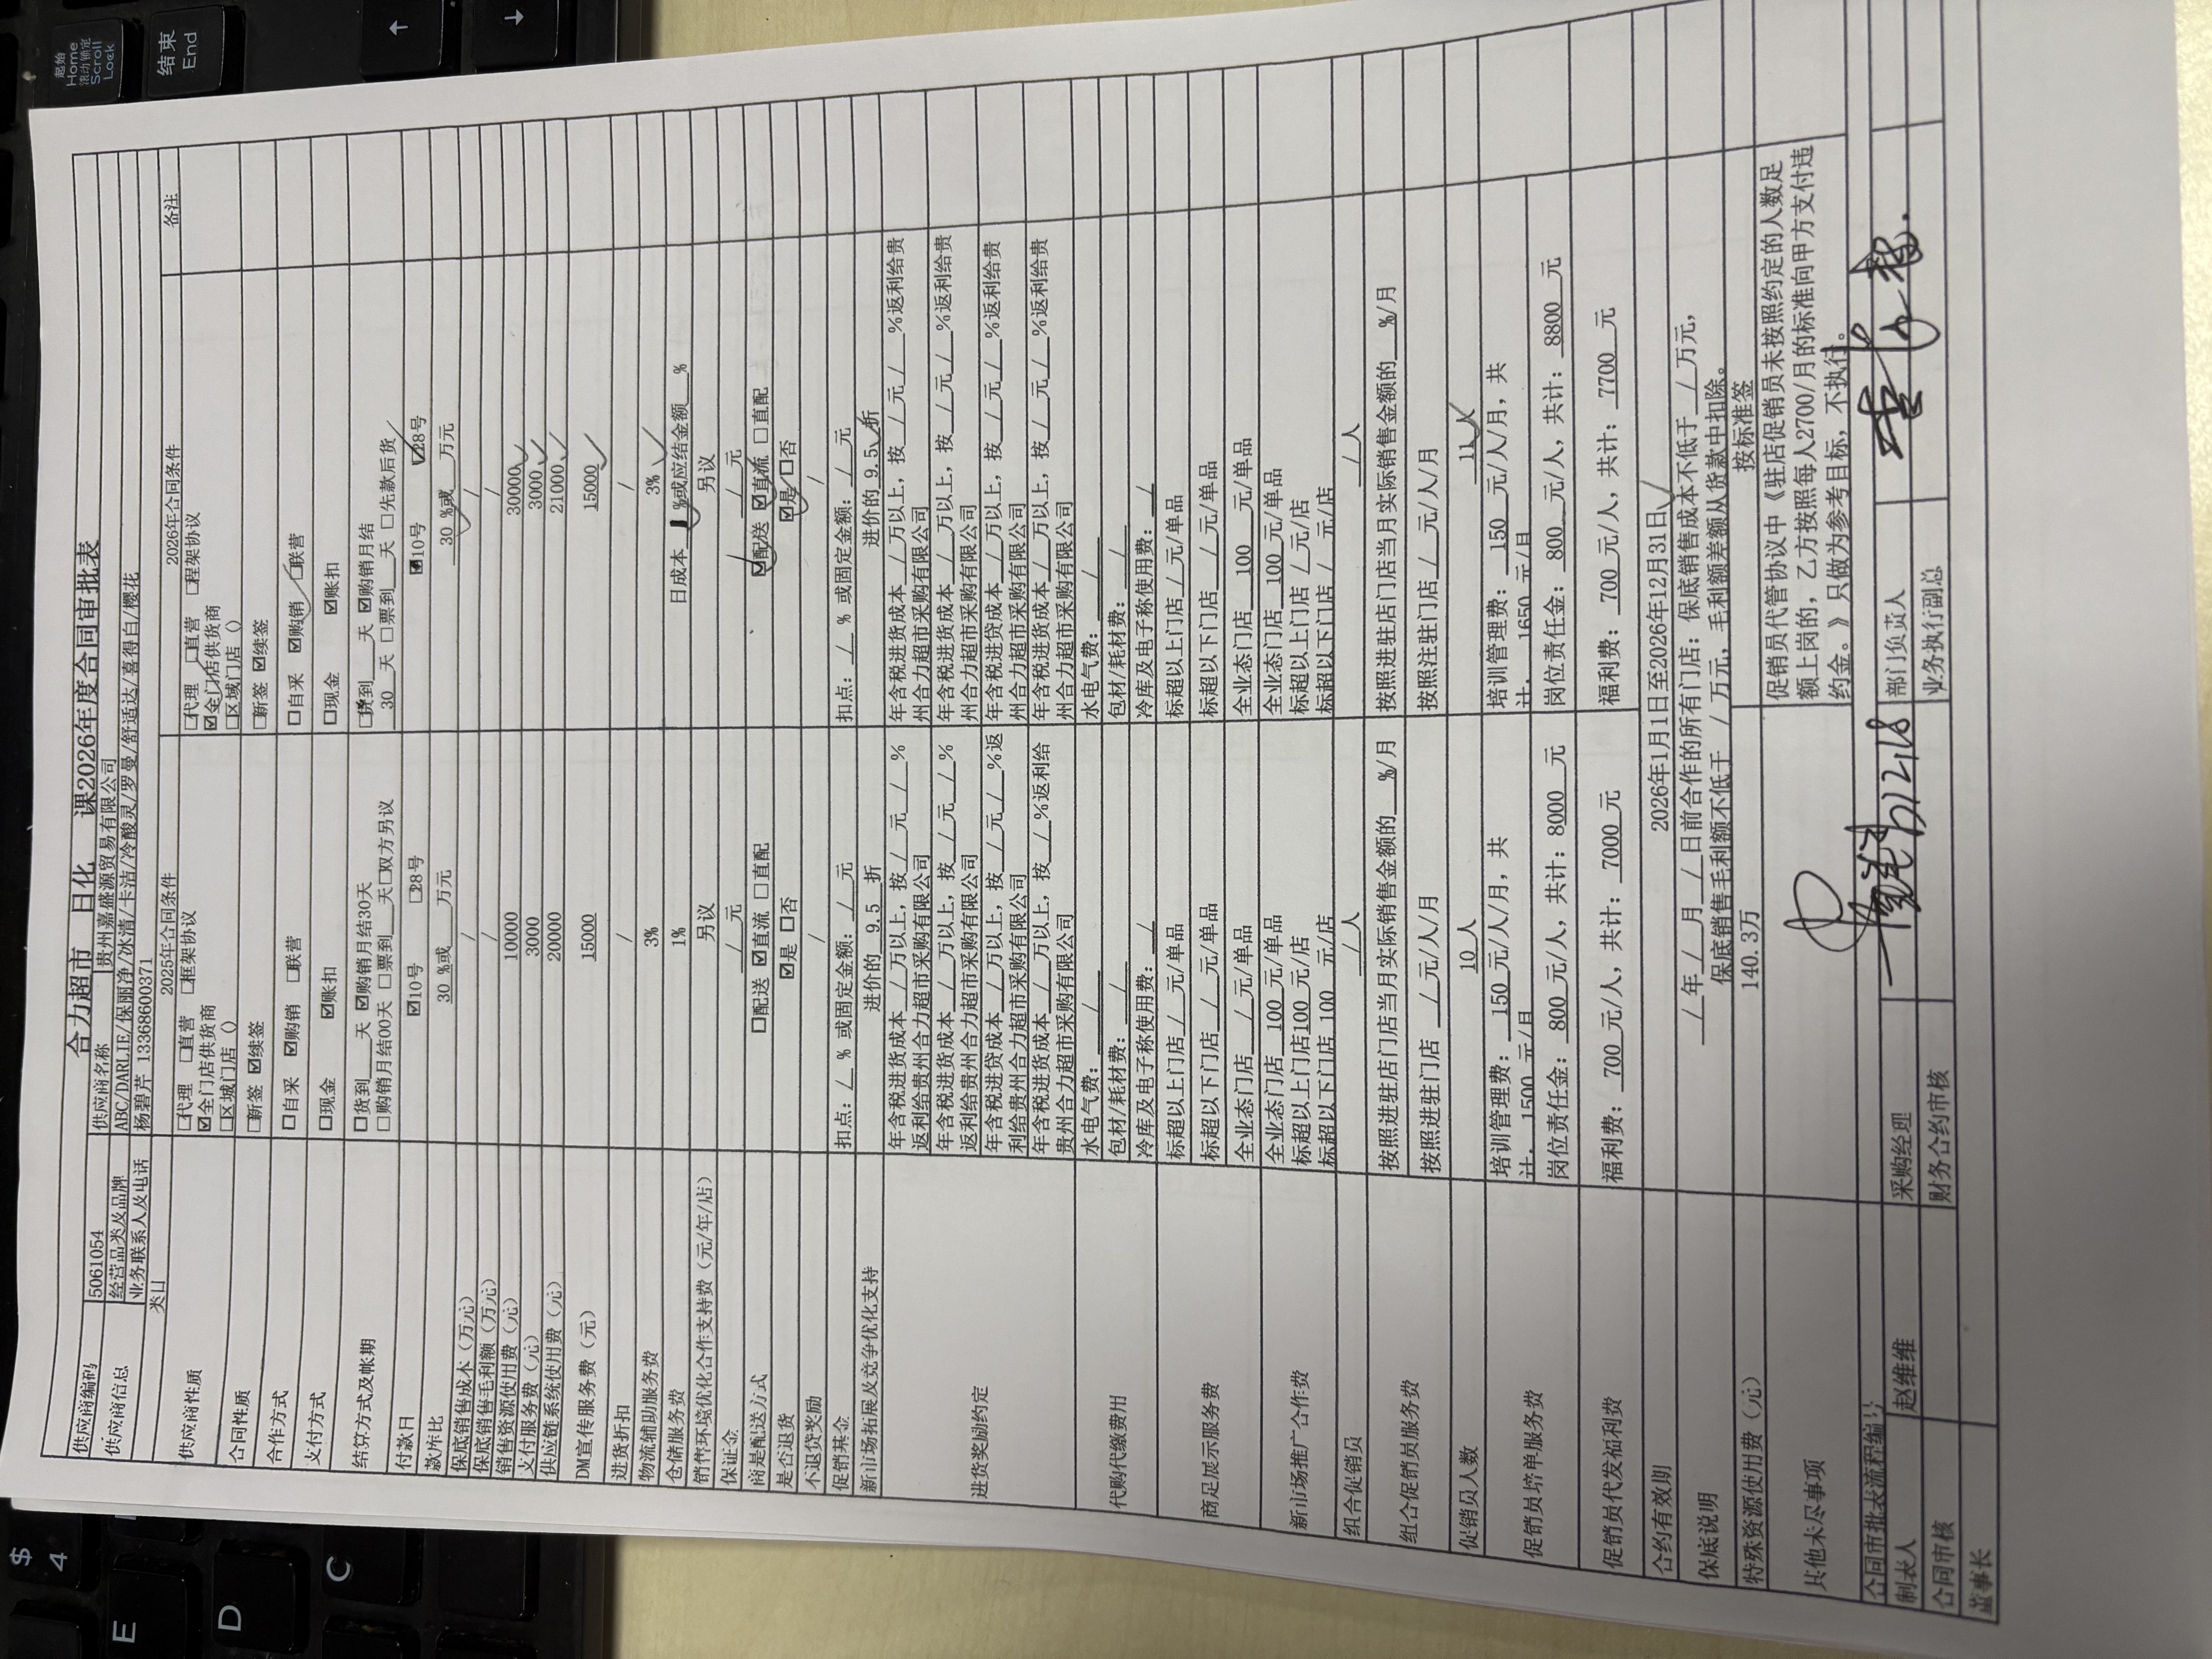 合力超市 日化 课2026年度合同审批表
供应商编码 5061054 供应商名称 贵州嘉盛源贸易有限公司
供应商信息 经营品类及品牌 ABC/DARLIE/保丽净/冰清/卡洁/冷酸灵/罗曼/舒适达/喜得白/樱花
业务联系人及电话 杨碧芹 13368600371
2025年合同条件 2026年合同条件 备注
供应商性质 □代理 □直营 □框架协议 □代理 □直营 □程架协议
☑全门店供货商 ☑全门店供货商
□区域门店（） □区域门店（）
合同性质 □新签 ☑续签 □新签 ☑续签
合作方式 □自采 ☑购销 □联营 □自采 ☑购销 □联营
支付方式 □现金 ☑账扣 □现金 ☑账扣
结算方式及帐期 □货到___天 ☑购销月结30天 □货到___天 ☑购销月结
□购销月结00天 □票到___天□双方另议 30 天 □票到___天 □先款后货
付款日 ☑10号 □28号 ☑10号 ☑28号
款库比 30 %或___万元 30 %或___万元
保底销售成本（万元） / /
保底销售毛利额（万元） / /
销售资源使用费（元） 10000 30000
支付服务费（元） 3000 3000
供应链系统使用费（元） 20000 21000
DM宣传服务费（元） 15000 15000
进货折扣 / /
物流辅助服务费 3% 3%
仓储服务费 1% 日成本 1 %或应结金额___%
销售环境优化合作支持费（元/年/店） 另议 另议
保证金 / 元 / 元
商品配送方式 □配送 ☑直流 □直配 ☑配送 ☑直流 □直配
是否退货 ☑是 □否 ☑是 □否
不退货奖励 / /
促销基金 扣点：/ % 或固定金额：/ 元 扣点：/ % 或固定金额：/ 元
新市场拓展及竞争优化支持 进价的 9.5 折 进价的 9.5 折
进货奖励约定 年含税进货成本 / 万以上，按 / 元 / % 年含税进货成本 / 万以上，按 / 元 / %返利给贵
返利给贵州合力超市采购有限公司 州合力超市采购有限公司
年含税进货成本 / 万以上，按 / 元 / % 年含税进货成本 / 万以上，按 / 元 / %返利给贵
返利给贵州合力超市采购有限公司 州合力超市采购有限公司
年含税进贷成本 / 万以上，按 / 元 / %返 年含税进贷成本 / 万以上，按 / 元 / %返利给贵
利给贵州合力超市采购有限公司 州合力超市采购有限公司
年含税进货成本 / 万以上，按 / %返利给 年含税进货成本 / 万以上，按 / 元 / %返利给贵
贵州合力超市采购有限公司 州合力超市采购有限公司
代购代缴费用 水电气费： / 水电气费： /
包材/耗材费： / 包材/耗材费： /
冷库及电子称使用费： / 冷库及电子称使用费： /
商品展示服务费 标超以上门店 / 元/单品 标超以上门店 / 元/单品
标超以下门店 / 元/单品 标超以下门店 / 元/单品
全业态门店 / 元/单品 全业态门店 100 元/单品
新市场推广合作费 全业态门店 100 元/单品 全业态门店 100 元/单品
标超以上门店100 元/店 标超以上门店 / 元/店
标超以下门店 100 元/店 标超以下门店 / 元/店
组合促销员 / 人 / 人
组合促销员服务费 按照进驻店门店当月实际销售金额的___%/月 按照进驻店门店当月实际销售金额的___%/月
按照进驻门店 / 元/人/月 按照注驻门店 / 元/人/月
促销员人数 10 人 11 人
促销员培单服务费 培训管理费： 150 元/人/月，共 培训管理费： 150 元/人/月，共
计. 1500 元/月 计. 1650 元/月
岗位责任金： 800 元/人，共计：8000 元 岗位责任金： 800 元/人，共计：8800 元
促销员代发福利费 福利费： 700 元/人，共计： 7000 元 福利费： 700 元/人，共计： 7700 元
合约有效期 2026年1月1日至2026年12月31日
保底说明 / 年 / 月 / 日前合作的所有门店：保底销售成本不低于 / 万元，
保底销售毛利额不低于 / 万元，毛利额差额从货款中扣除。
特殊资源使用费（元） 140.3万 按标准签
其他未尽事项 促销员代管协议中《驻店促销员未按照约定的人数足
额上岗的，乙方按照每人2700/月的标准向甲方支付违
约金。》只做为参考目标，不执行。
合同审批表流程编号
制表人 赵维维 采购经理 部门负责人
合同审核 财务合约审核 业务执行副总
董事长